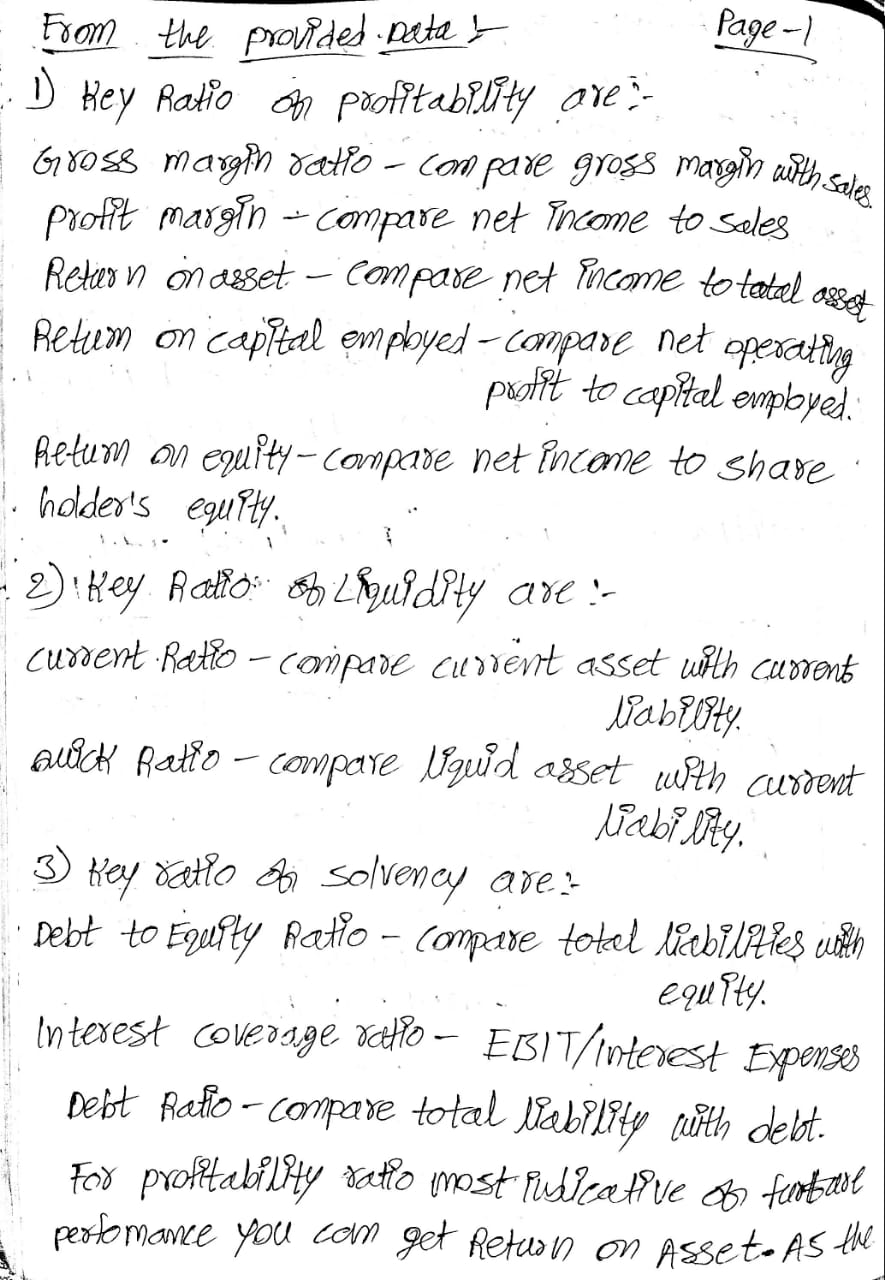 From the provided Data :-
Page-1
1) Key Ratio of profitability are :-
Gross margin ratio - compare gross margin with sales.
profit margin - compare net income to sales
Return on asset - compare net income to total asset
Return on capital employed - compare net operating
profit to capital employed.
Return on equity - compare net income to share
holder's equity.
2) Key Ratio of Liquidity are :-
current Ratio - compare current asset with current
liability.
Quick Ratio - compare liquid asset with current
liability.
3) Key ratio of solvency are :-
Debt to Equity Ratio - compare total liabilities with
equity.
Interest coverage ratio - EBIT/Interest Expenses
Debt Ratio - compare total liability with debt.
For profitability ratio most indicative of furture
perfomance you com get Return on Asset. As the